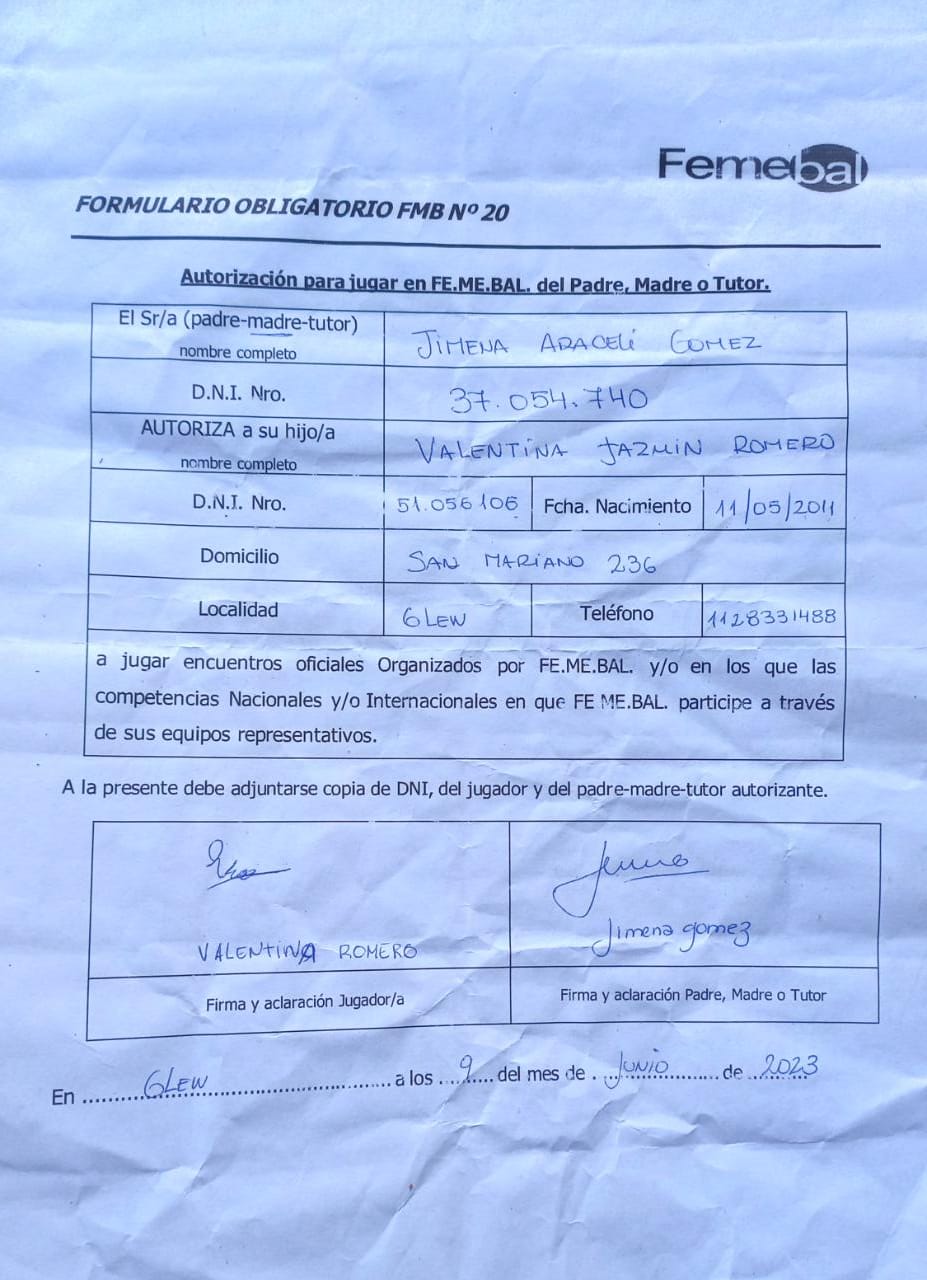 Femebal
FORMULARIO OBLIGATORIO FMB Nº 20
Autorización para jugar en FE.ME.BAL. del Padre, Madre o Tutor.
El Sr/a (padre-madre-tutor)
nombre completo
JIMENA ARACELI GOMEZ
D.N.I. Nro.
37.054.740
AUTORIZA a su hijo/a
nombre completo
VALENTINA JAZMIN ROMERO
D.N.I. Nro.
51.056106
Fcha. Nacimiento
11/05/2011
Domicilio
SAN MARIANO 236
Localidad
GLEW
Teléfono
1128331488
a jugar encuentros oficiales Organizados por FE.ME.BAL. y/o en los que las
competencias Nacionales y/o Internacionales en que FE ME.BAL. participe a través
de sus equipos representativos.
A la presente debe adjuntarse copia de DNI, del jugador y del padre-madre-tutor autorizante.
VALENTINA ROMERO
Jimena gomez
Firma y aclaración Jugador/a
Firma y aclaración Padre, Madre o Tutor
En GLEW a los 9 del mes de JUNIO de 2023